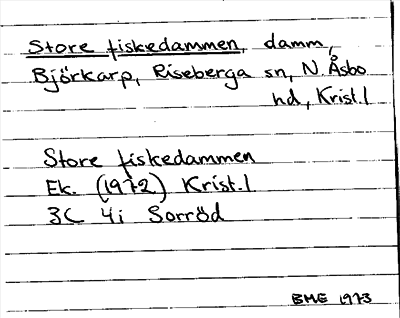 Store fiskedammen, damm,
Björkarp, Riseberga sn, N. Åsbo
hd, Krist. l
Store fiskedammen
Ek. (1972) Krist. l
3C 4i Sorröd
BME 1973